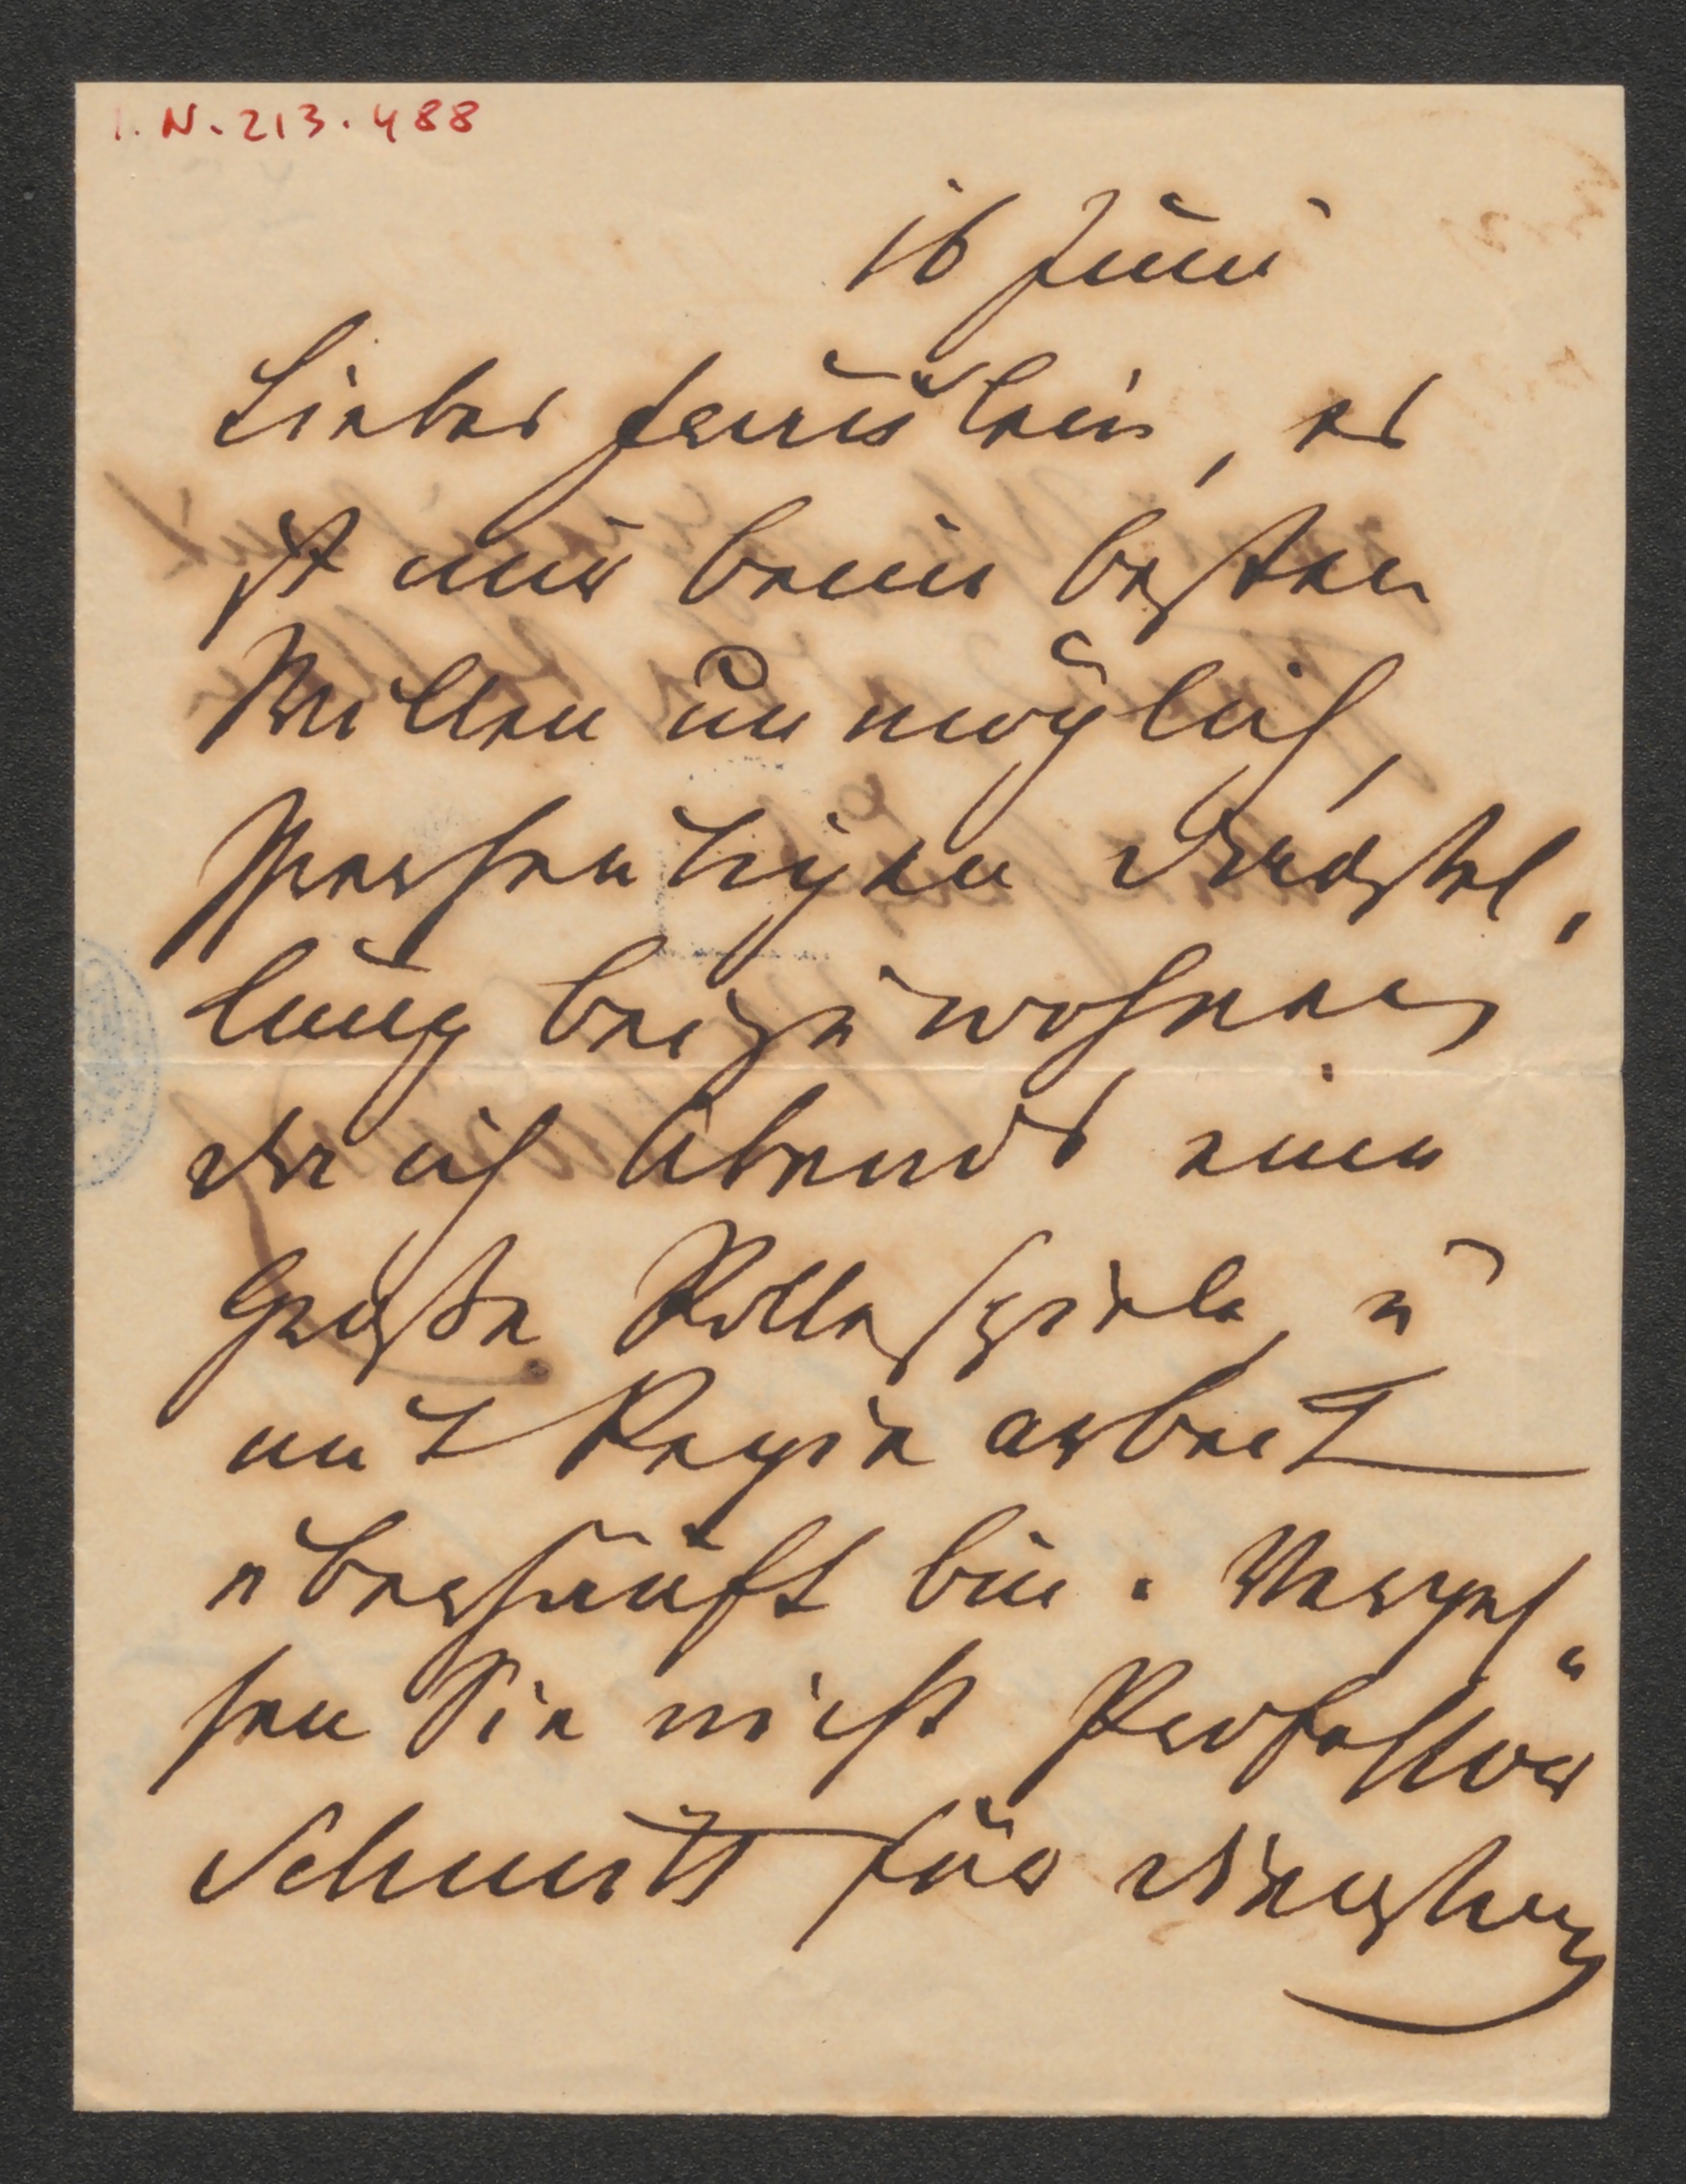 I.N. 213.488
16 Juni
Liebes Fräulein, es
ist mir beim besten
Willen unmöglich,
heutigen Darstel-
lung beizuwohnen
da ich Abends eine
große Rolle spiele, u
mit Regie arbeit
überhäuft bin. Verges-
sen Sie nicht Professor
Schmitt für Dienstag